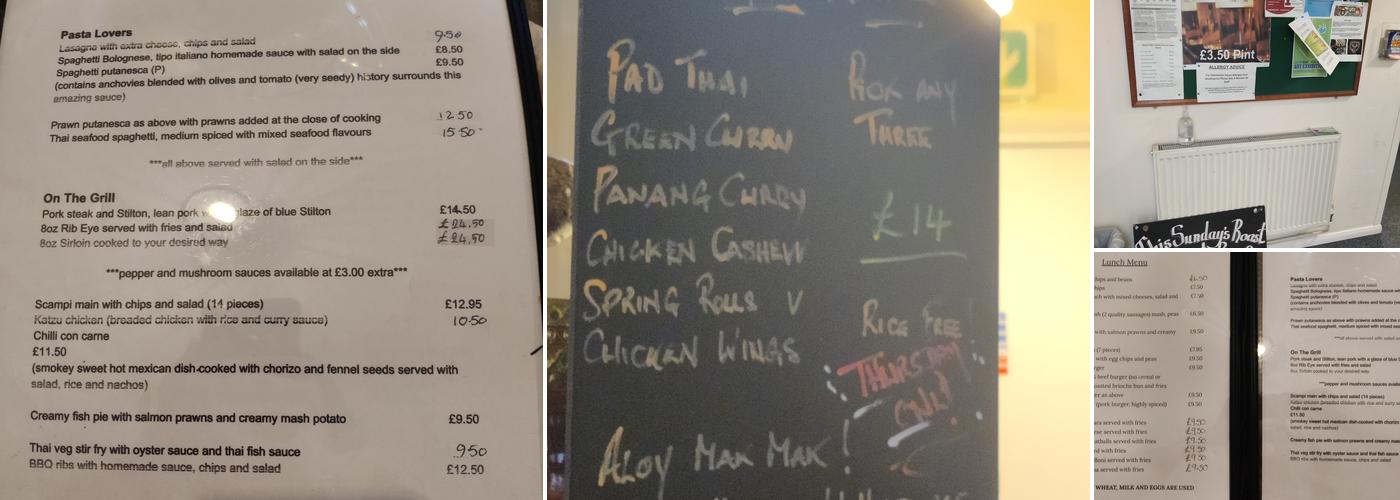 Pasta Lovers
Lasagne with extra cheese, chips and salad 9.50
Spaghetti Bolognese, tipo italiano homemade sauce with salad on the side £8.50
Spaghetti putanesca (P) £9.50
(contains anchovies blended with olives and tomato (very seedy) history surrounds this
amazing sauce)
Prawn putanesca as above with prawns added at the close of cooking 12.50
Thai seafood spaghetti, medium spiced with mixed seafood flavours 15.50
***all above served with salad on the side***
On The Grill
Pork steak and Stilton, lean pork glaze of blue Stilton £14.50
8oz Rib Eye served with fries and salad £24.50
8oz Sirloin cooked to your desired way £24.50
***pepper and mushroom sauces available at £3.00 extra***
Scampi main with chips and salad (14 pieces) £12.95
Katzu chicken (breaded chicken with rice and curry sauce) 10.50
Chilli con carne
£11.50
(smokey sweet hot mexican dish-cooked with chorizo and fennel seeds served with
salad, rice and nachos)
Creamy fish pie with salmon prawns and creamy mash potato £9.50
Thai veg stir fry with oyster sauce and thai fish sauce 9.50
BBQ ribs with homemade sauce, chips and salad £12.50
PAD THAI
GREEN CURRY
PANANG CURRY
CHICKEN CASHEW
SPRING ROLLS V
CHICKEN WINGS
ALOY MAK MAK!
FOR ANY
THREE
£14
RICE FREE
THURSDAY
ONLY
£3.50 Pint
ALLERGY ADVICE
This Sunday's Roast
Lunch Menu
chips and beans £6.50
chips £7.50
with mixed cheeses, salad and £7.50
(2 quality sausages) mash, peas £8.50
with salmon prawns and creamy £9.50
(7 pieces) £7.95
with egg chips and peas £9.50
£9.50
beef burger (no cereal or
toasted brioche bun and fries
as above £9.50
(pork burger, highly spiced) £9.50
served with fries £9.50
served with fries £9.50
served with fries £9.50
with fries £9.50
served with fries £9.50
served with fries £9.50
WHEAT, MILK AND EGGS ARE USED
Pasta Lovers
Lasagne with extra cheese, chips and salad
Spaghetti Bolognese, tipo italiano homemade sauce
Spaghetti putanesca (P)
(contains anchovies blended with olives and tomato
amazing sauce)
Prawn putanesca as above with prawns added at the
Thai seafood spaghetti, medium spiced with mixed
***all above served with
On The Grill
Pork steak and Stilton, lean pork with a glaze of blue
8oz Rib Eye served with fries and salad
8oz Sirloin cooked to your desired way
***pepper and mushroom sauces
Scampi main with chips and salad (14 pieces)
Katzu chicken (breaded chicken with rice and curry
Chilli con carne
£11.50
(smokey sweet hot mexican dish-cooked with chorizo
salad, rice and nachos)
Creamy fish pie with salmon prawns and creamy
Thai veg stir fry with oyster sauce and thai fish sauce
BBQ ribs with homemade sauce, chips and salad